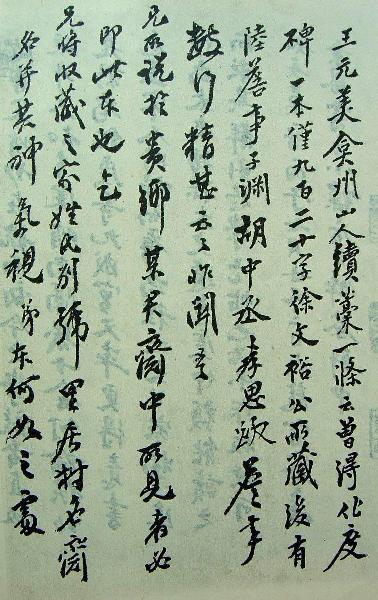 王元美弇州山人續藁一條云曾得化度
碑一本僅九百二十字徐文裕公所藏後有
陸詹事子淵胡中丞孝思跋詹事
數行精甚云々昨聞吾
兄所說於貴鄉某君齋中所見者必
即此本也乞
兄將收藏之家姓氏別號里居村名齋
名并其神氣視弟本何如之處